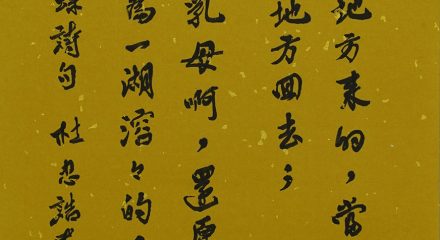 地方来的，當
地方回去；
乳母啊，還原
為一湖溶々的
詩句 杜忠誥書